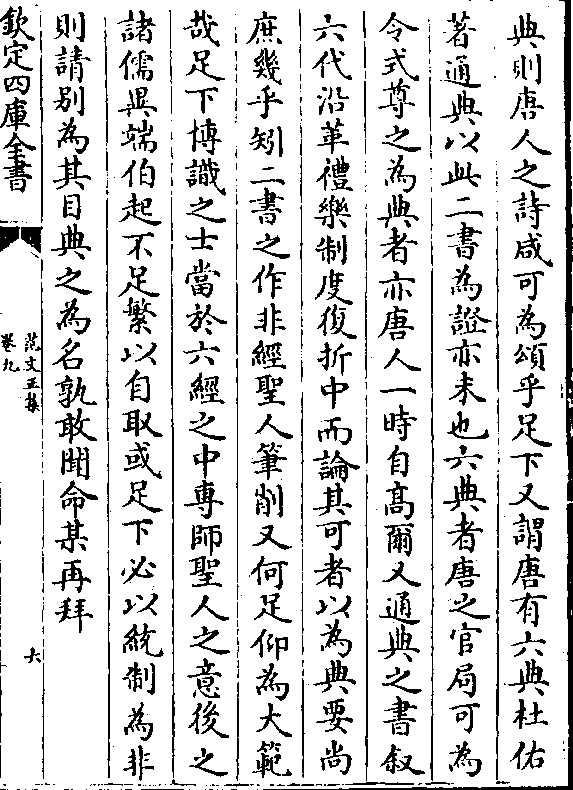 典則唐人之詩咸可為頌乎足下又謂唐有六典杜佑
著通典以此二書為證亦未也六典者唐之官局可為
令式尊之為典者亦唐人一時自髙爾又通典之書叙
六代沿革禮樂制度復折中而論其可者以為典要尚
庶幾乎矧二書之作非經聖人筆削又何足仰為大範
哉足下博識之士當於六經之中專師聖人之意後之
諸儒異端伯起不足繁以自取或足下必以統制為非
則請别為其目典之為名孰敢聞命某再拜
欽定四庫全書
范文正集
卷九
六